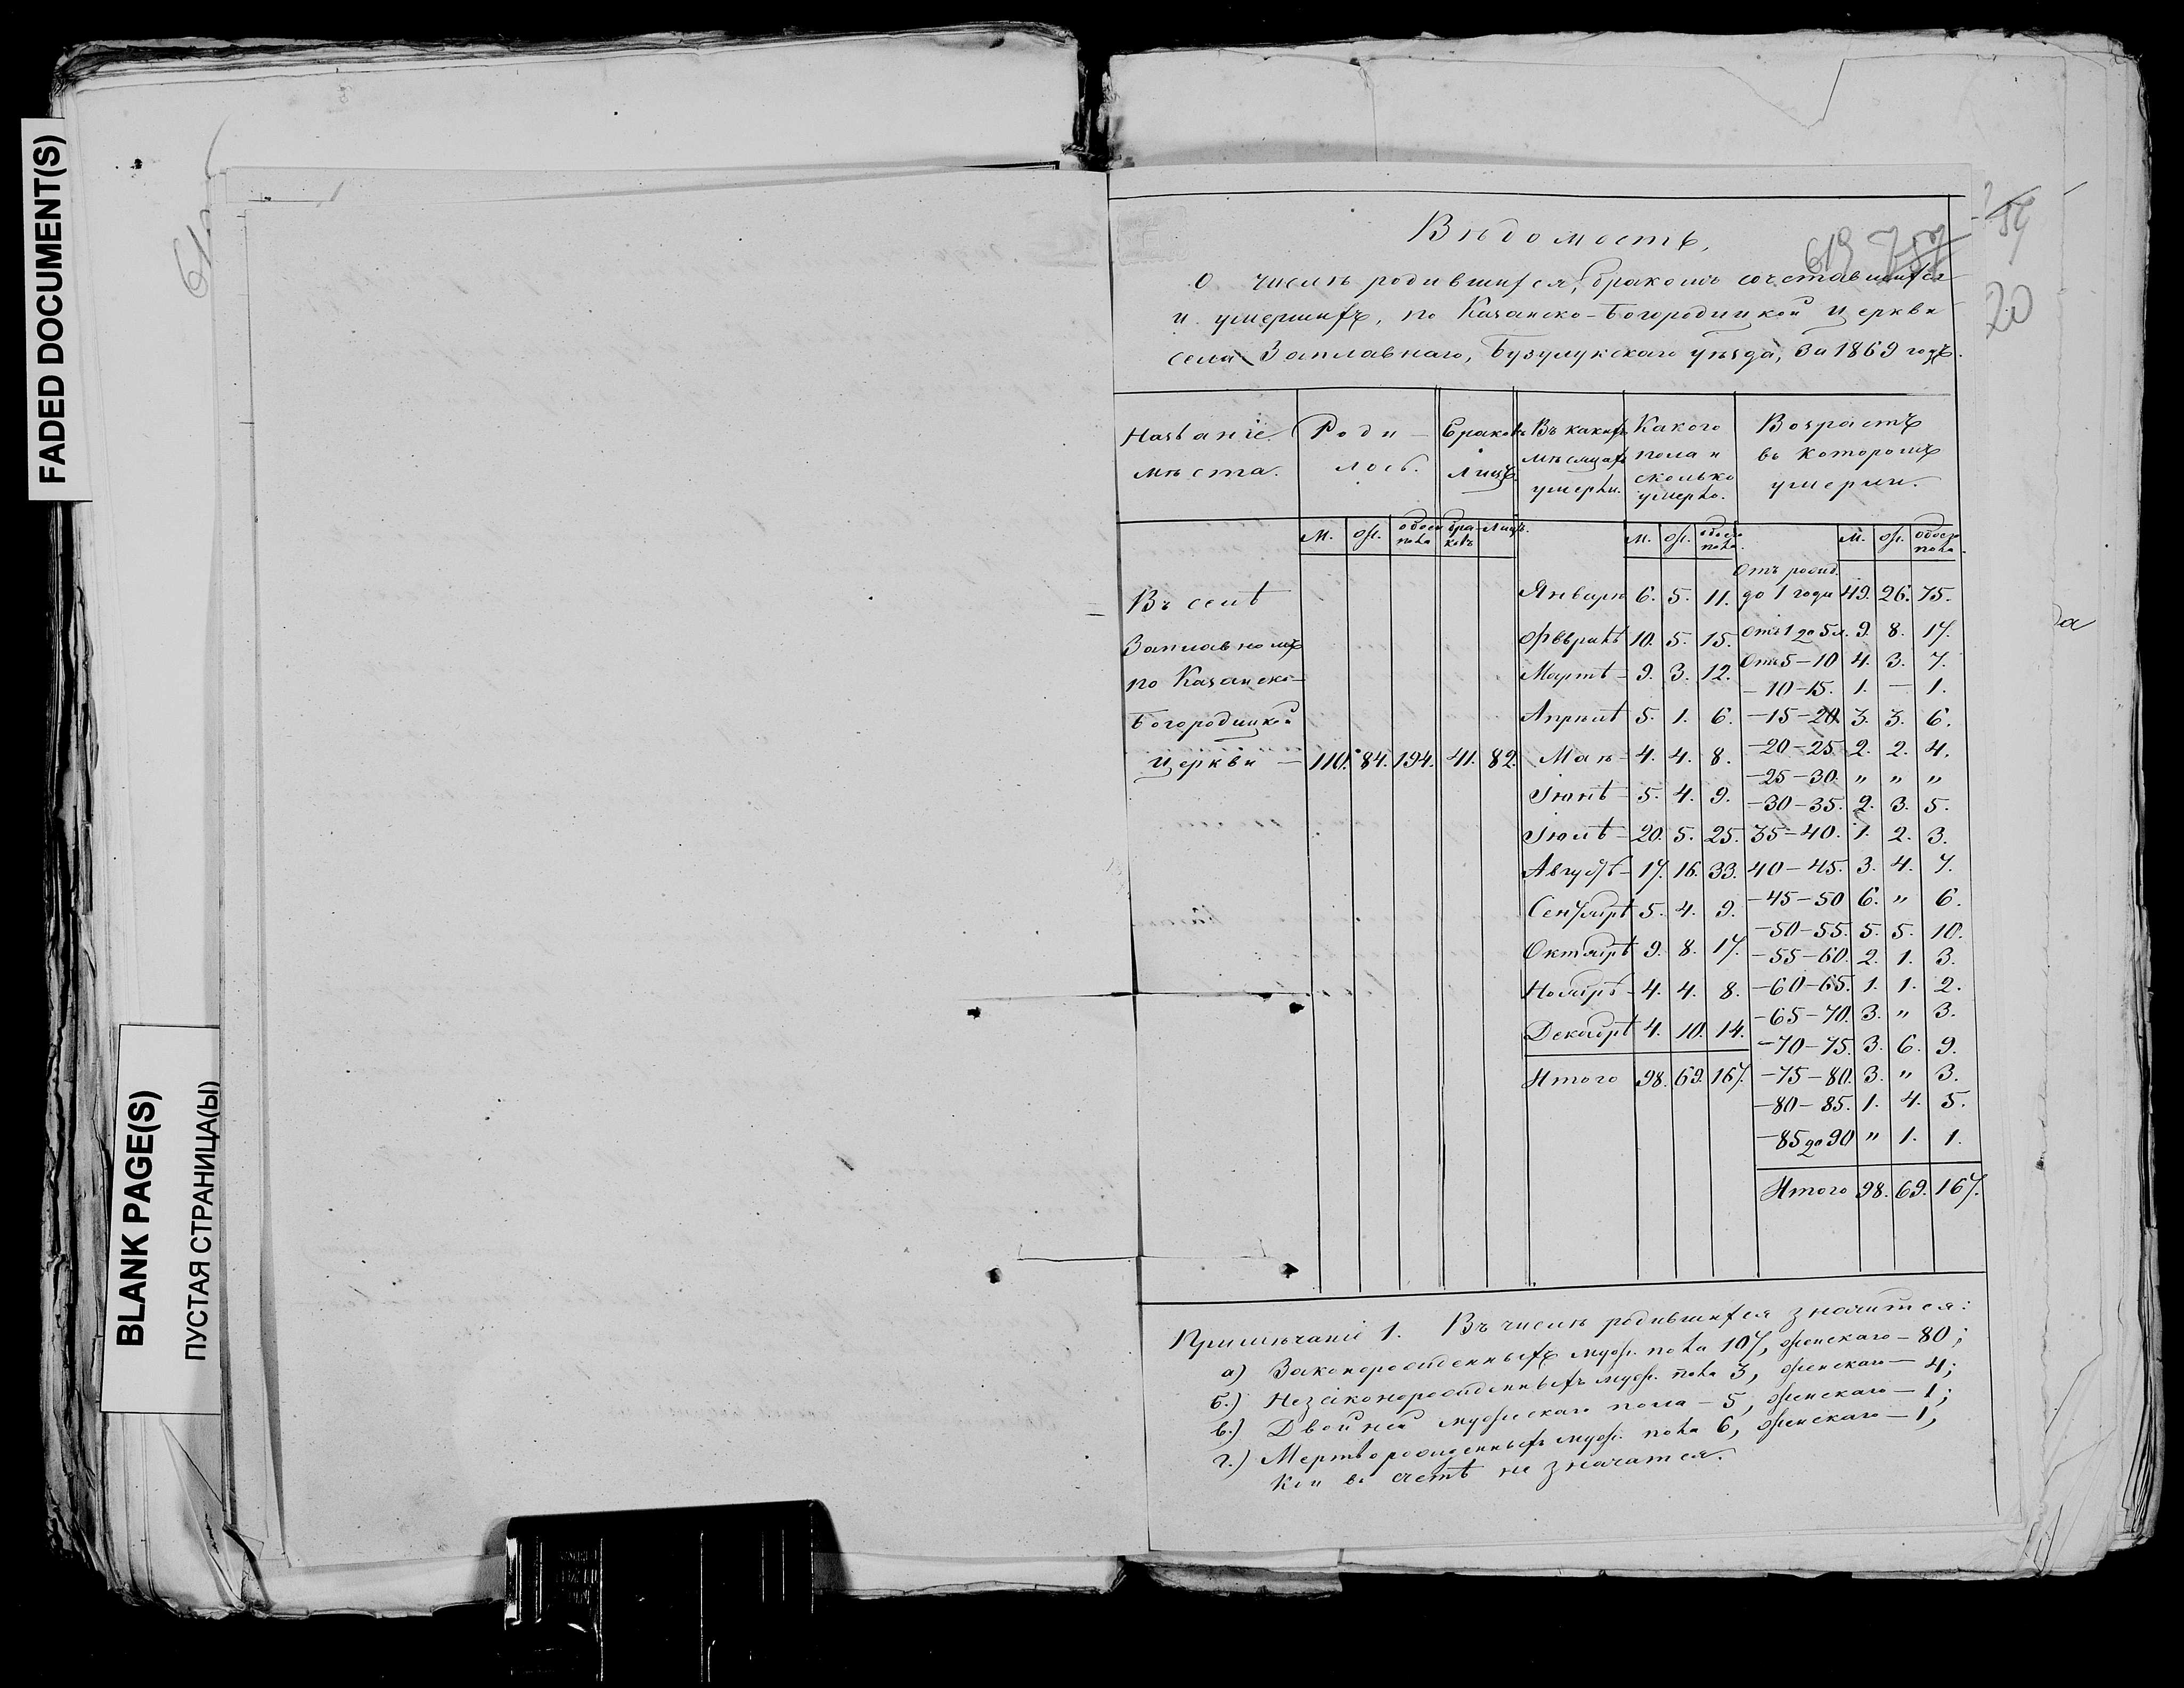 FADED DOCUMENT(S)
BLANK PAGE(S)
ПУСТАЯ СТРАНИЦА(Ы)
619 757
20
Вѣдомость,
о числѣ родившихся, бракомъ сочетавшихся
и умершихъ, по Казанско-Богородицкой церкви
села Заплавнаго, Бузулукскаго уѣзда, за 1869 годъ.
Названіе мѣста. | Родилось. | Браковъ Лицъ. | Въ какихъ мѣсяцахъ умерли. | Какого пола и сколько умерло. | Возрастъ въ которомъ умерли.
м. | ж. | обоего пола | браковъ | лицъ. | м. | ж. | обоего пола. | м. | ж. | обоего пола.
Въ селѣ
Заплавномъ
по Казанско-
Богородицкой
церкви — 110. 84. 194. 41. 82.
Январѣ 6. 5. 11.
Февралѣ 10. 5. 15.
Мартѣ - 9. 3. 12.
Апрѣлѣ 5. 1. 6.
Маѣ - 4. 4. 8.
Іюнѣ - 5. 4. 9.
Іюлѣ - 20. 5. 25.
Августѣ - 17. 16. 33.
Сентябрѣ 5. 4. 9.
Октябрѣ 9. 8. 17.
Ноябрѣ - 4. 4. 8.
Декабрѣ 4. 10. 14.
Итого 98. 69. 167.
Отъ рожд.
до 1 года 49. 26. 75.
Отъ 1 до 5 л. 9. 8. 17.
Отъ 5-10 4. 3. 7.
-10-15. 1. - 1.
-15-20. 3. 3. 6.
-20-25. 2. 2. 4.
-25-30. " " "
-30-35. 2. 3. 5.
35-40. 1. 2. 3.
40-45. 3. 4. 7.
-45-50 6. " 6.
-50-55. 5. 5. 10.
-55-60. 2. 1. 3.
-60-65. 1. 1. 2.
-65-70. 3. " 3.
-70-75. 3. 6. 9.
-75-80. 3. " 3.
-80-85. 1. 4. 5.
-85 до 90 " 1. 1.
Итого 98. 69. 167.
Примѣчаніе 1. Въ числѣ родившихся значится:
а) Законорожденныхъ муж. пола 107, женскаго - 80;
б.) Незаконорожденныхъ муж. пола 3, женскаго - 4;
в.) Двойней мужескаго пола - 5, женскаго - 1;
г.) Мертворожденныхъ муж. пола 6, женскаго - 1,
кои въ счетѣ не значатся.